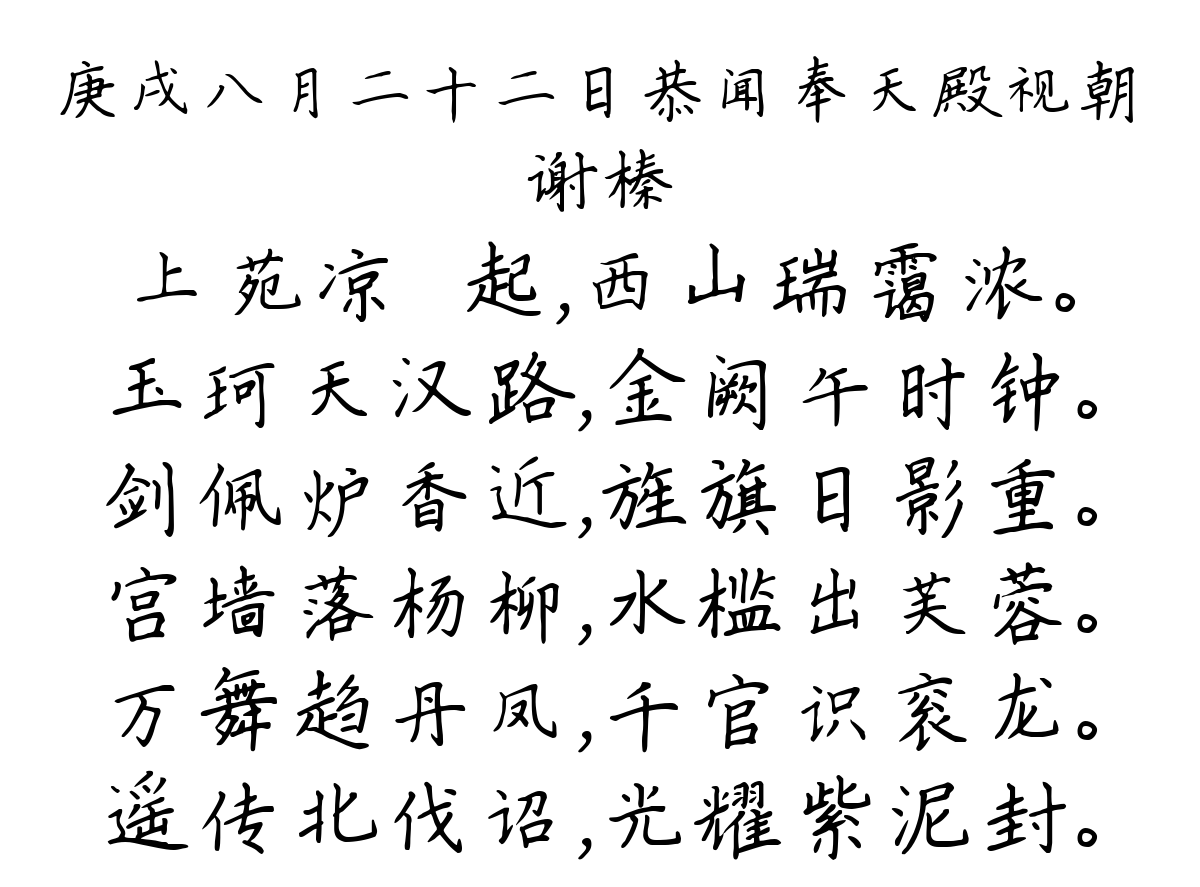 庚戌八月二十二日恭闻奉天殿视朝
谢榛
上苑凉 起,西山瑞霭浓。
玉珂天汉路,金阙午时钟。
剑佩炉香近,旌旗日影重。
宫墙落杨柳,水槛出芙蓉。
万舞趋丹凤,千官识衮龙。
遥传北伐诏,光耀紫泥封。